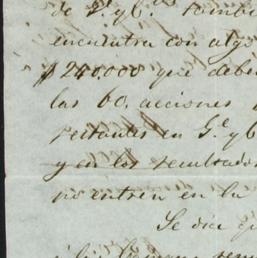 de P. y C.ª tambi
encuentra con algo
$240.000 que deber
las 60, acciones
restantes en G.e y C
y en los resultados
no entren en la
Se dice q